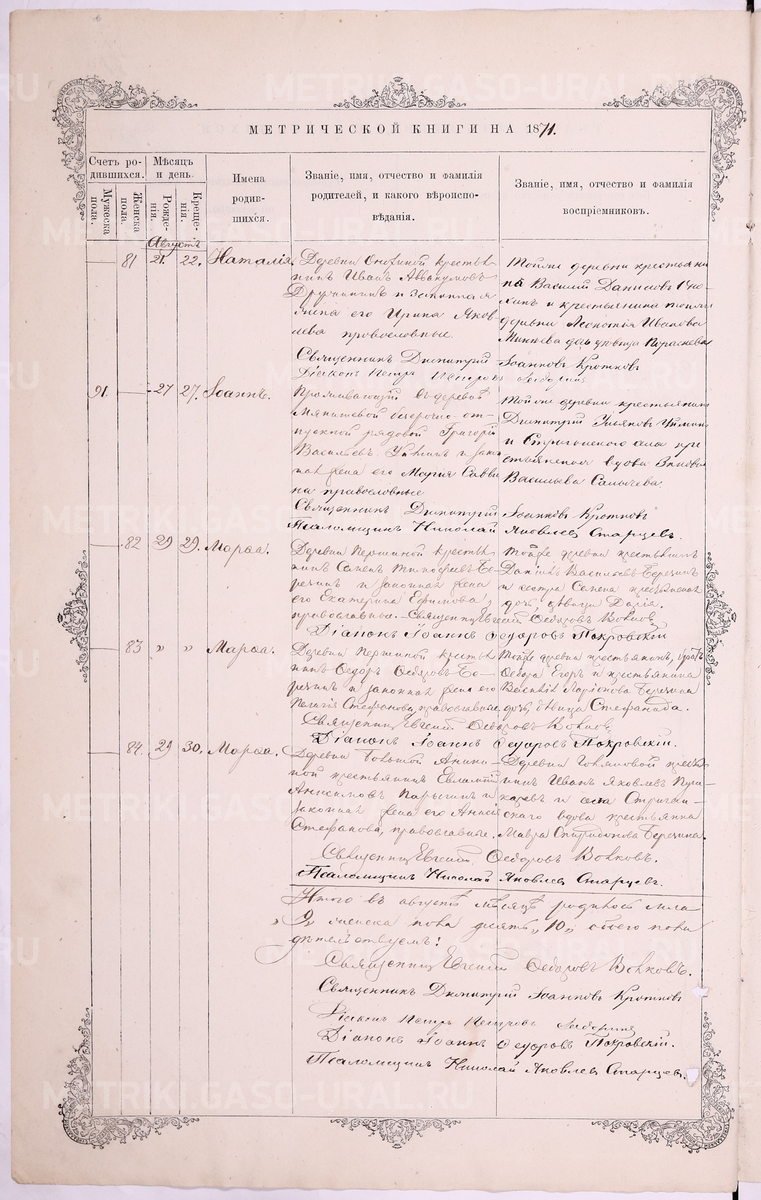 МЕТРИЧЕСКОЙ КНИГИ НА 1871.
Счетъ родившихся.
Мужеска пола.
Женска пола.
Мѣсяцъ и день.
Рожденія.
Крещенія.
Имена родившихся.
Званіе, имя, отчество и фамилія родителей, и какого вѣроисповѣданія.
Званіе, имя, отчество и фамилія воспріемниковъ.
Августъ
81 21. 22. Наталія
Деревни крестья
нинъ Иванъ Аввакумовъ
Дружининъ и законная
жена его Ирина Яков
лева православные.
Тойже деревни крестьяни
на Василій Даниловъ
и крестьянина тойже
деревни Иванова
дочь дѣвица Параскева
Священникъ Димитрій Іоанновъ Кротковъ
Діаконъ Петръ Петровъ
91. 27 27. Іоаннъ.
Проживающій въ деревнѣ
безсрочно-от-
пускной рядовой Григорій
Васильевъ и закон
ная жена его Марія Савви
на православные
Тойже деревни крестьянинъ
Димитрій
и села кре
стьянская вдова
Васильева
Священникъ Димитрій Іоанновъ Кротковъ
Псаломщикъ Николай Яковлевъ Старцевъ.
82 29 29. Марѳа.
Деревни Першиной крестья
нинъ Семенъ Тимофеевъ Бе-
речинъ и законная жена
его Екатерина Ефимова,
православные.
Тойже деревни крестьянинъ
Даніилъ Васильевъ
и сестра Семена крестьянская
дочь дѣвица Дарія.
Священникъ Евгеній Ѳедоровъ Волковъ
Діаконъ Іоаннъ Ѳедоровъ Покровскій
83 " " Марѳа.
Деревни Першиной крестья
нинъ Ѳедоръ Ѳедоровъ Бе-
речинъ и законная жена его
Пелагія Стефанова, православные.
Тойже деревни крестьянинъ, братъ
Ѳедора Егоръ и крестьянина
Василія Ларіонова
дочь, дѣвица Стефанида.
Священникъ Евгеній Ѳедоровъ Волковъ
Діаконъ Іоаннъ Ѳедоровъ Покровскій.
84. 29 30. Марѳа.
Деревни
ной крестьянинъ Евлампій
Анисимовъ и
законная жена его
Стефанова, православные.
Деревни кресть
нинъ Иванъ Яковлевъ
и села Стриган-
скаго вдова крестьянка
Мавра Спиридонова
Священникъ Евгеній Ѳедоровъ Волковъ.
Псаломщикъ Николай Яковлевъ Старцевъ.
Итого въ августѣ мѣсяцѣ родилось
женска пола десять "10" обоего пола
Священникъ Евгеній Ѳедоровъ Волковъ.
Священникъ Димитрій Іоанновъ Кротковъ
Діаконъ Петръ Петровъ
Діаконъ Іоаннъ Ѳедоровъ Покровскій.
Псаломщикъ Николай Яковлевъ Старцевъ.
METRIKI.GASO-URAL.RU